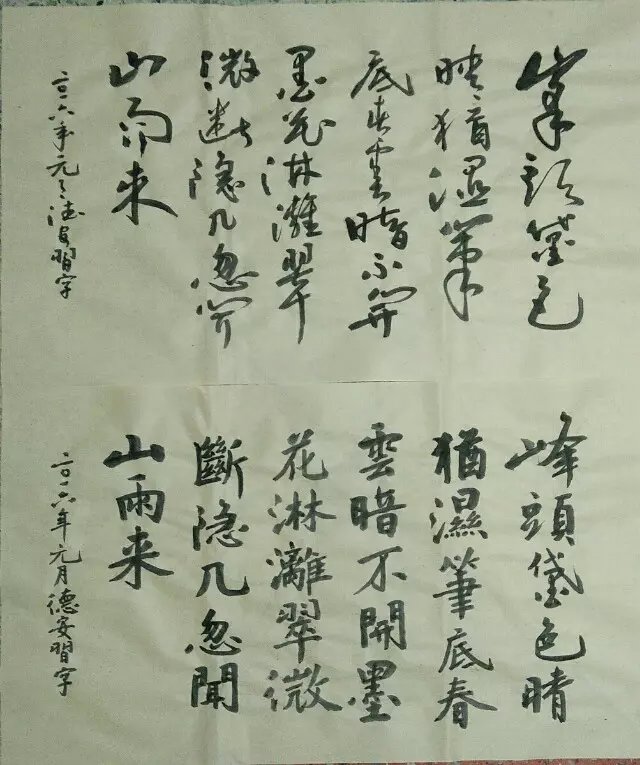 峯頭黛色
晴猶湿筆
底春雲暗不開
墨花淋灕翠
微斷隐几忽聞
山雨来
二〇一六年元月德安習字
峰頭黛色晴
猶濕筆底春
雲暗不開墨
花淋灕翠微
斷隐几忽聞
山雨来
二〇一六年元月德安習字